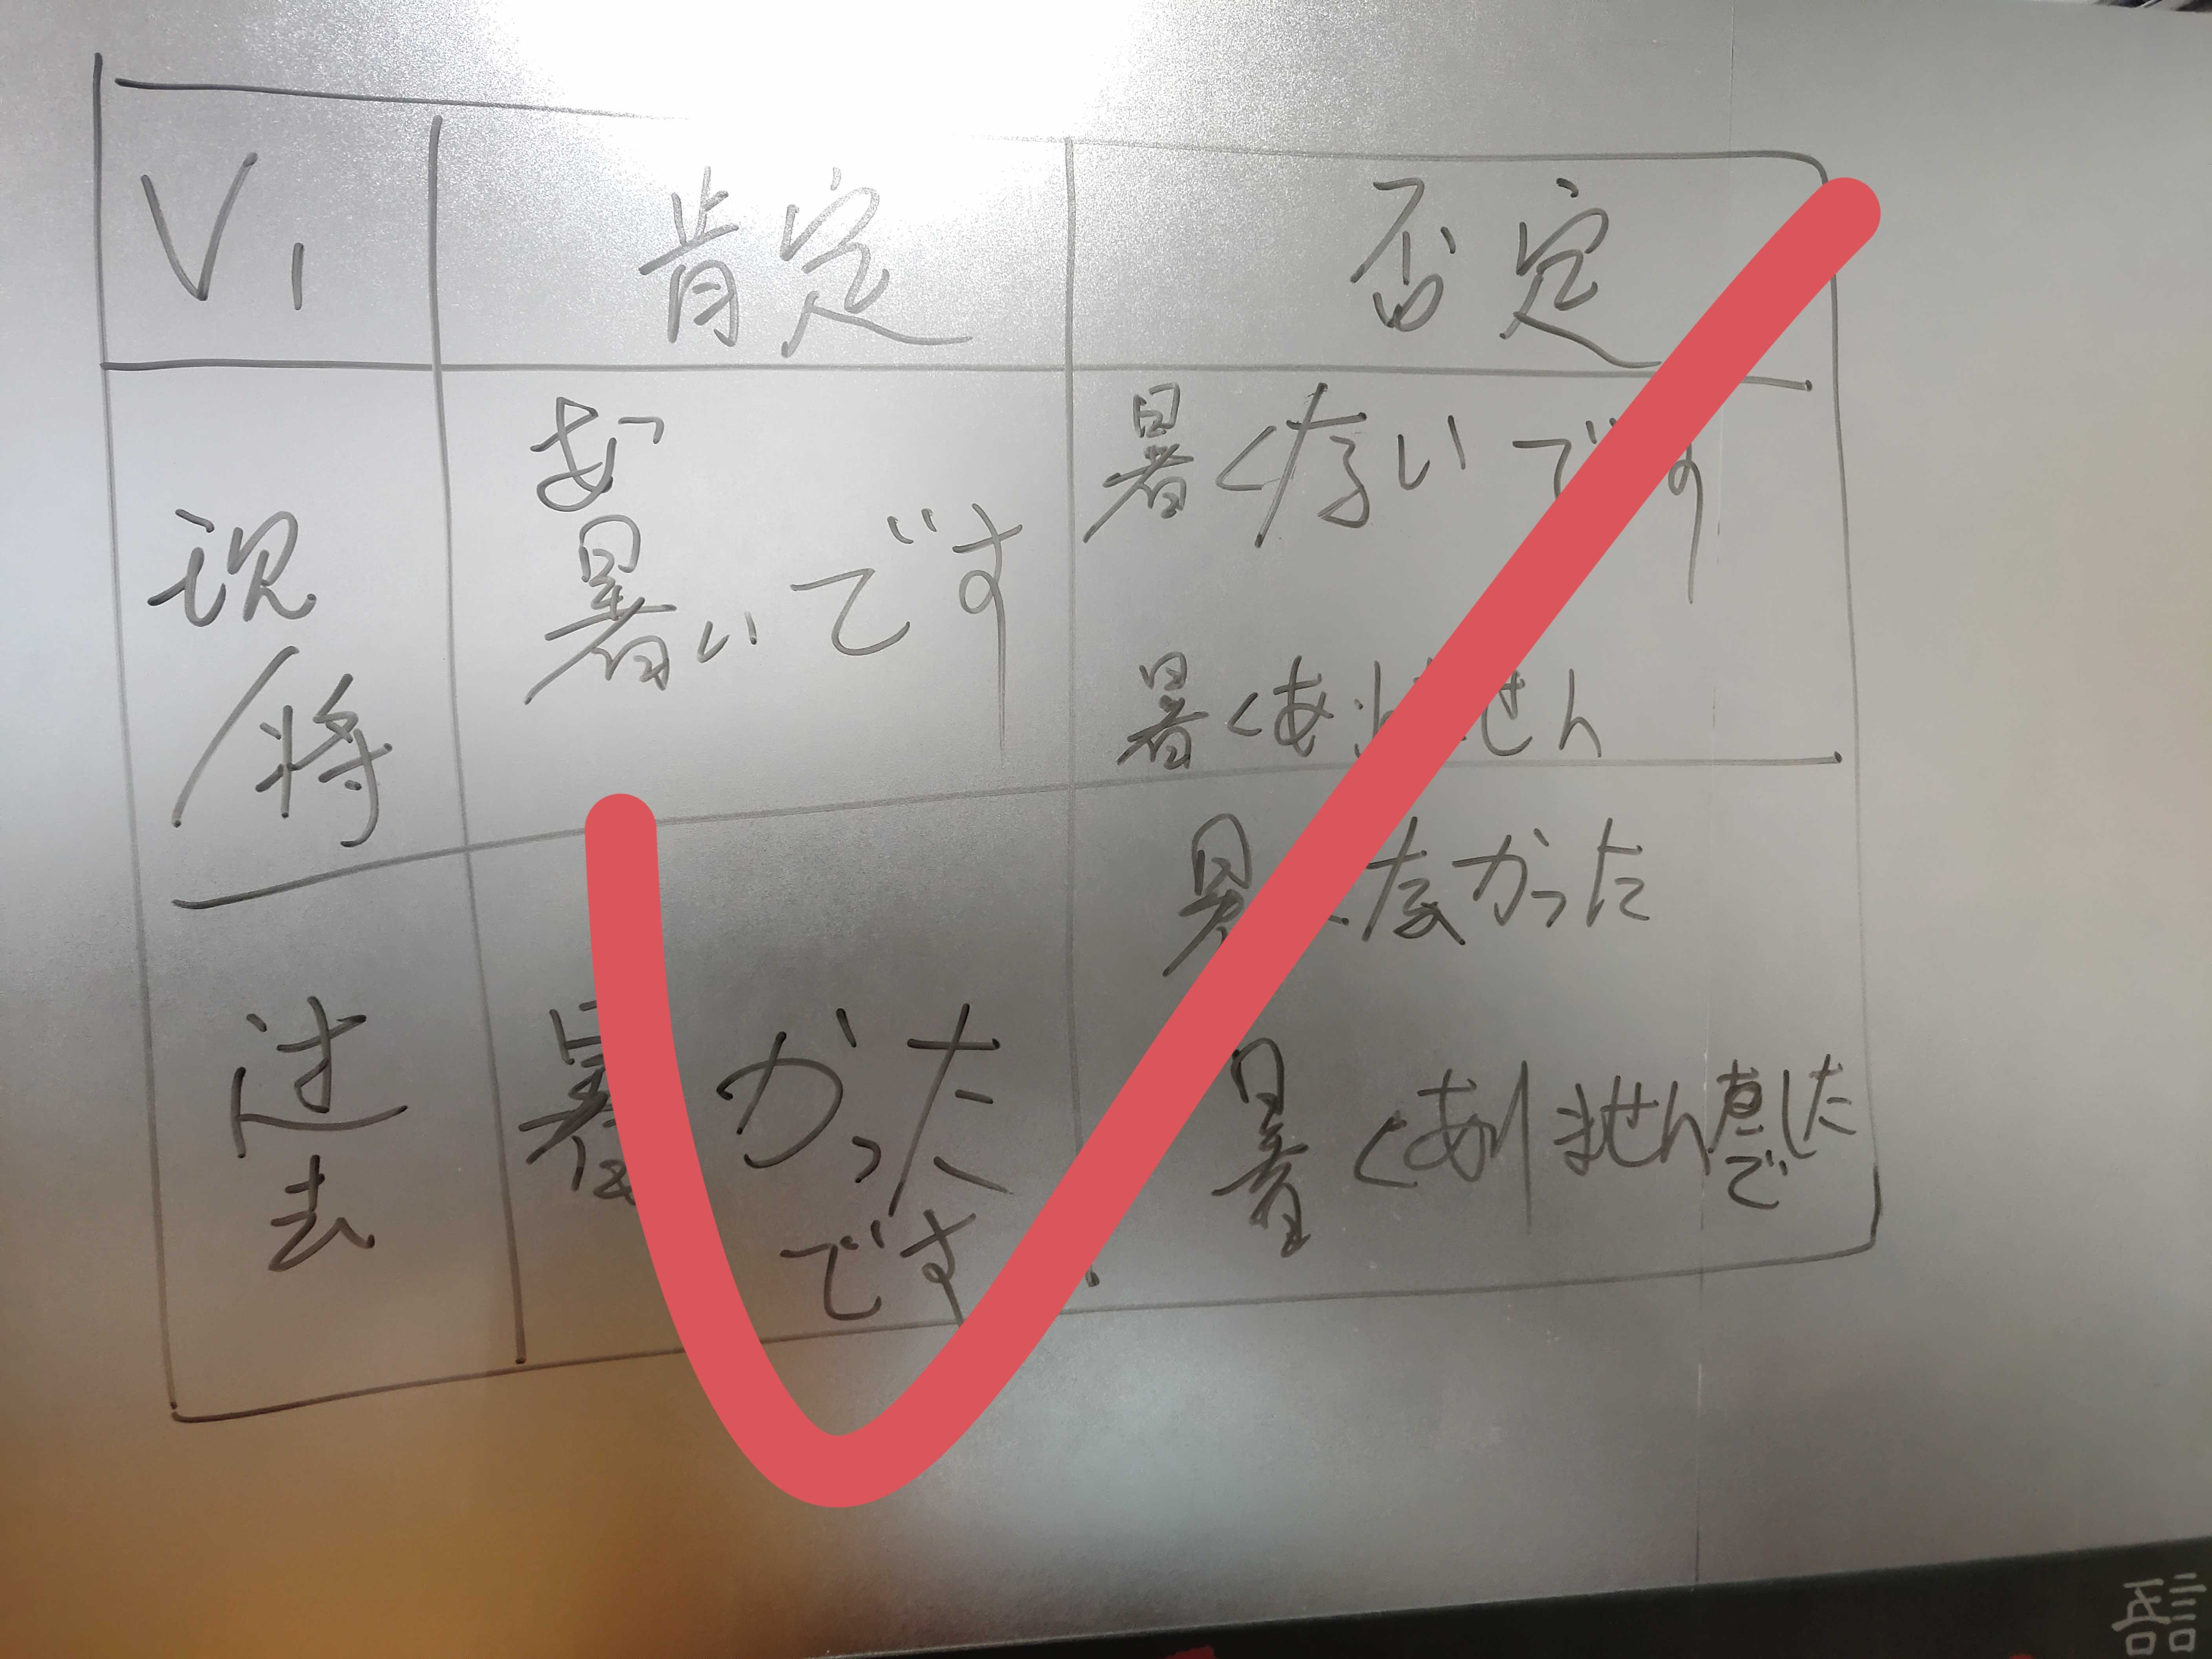 V1 肯定 否定
现/将
あつ
暑いです
暑くないです
暑くありません
过去
暑かった
です
暑くなかった
暑くありませんでした
語